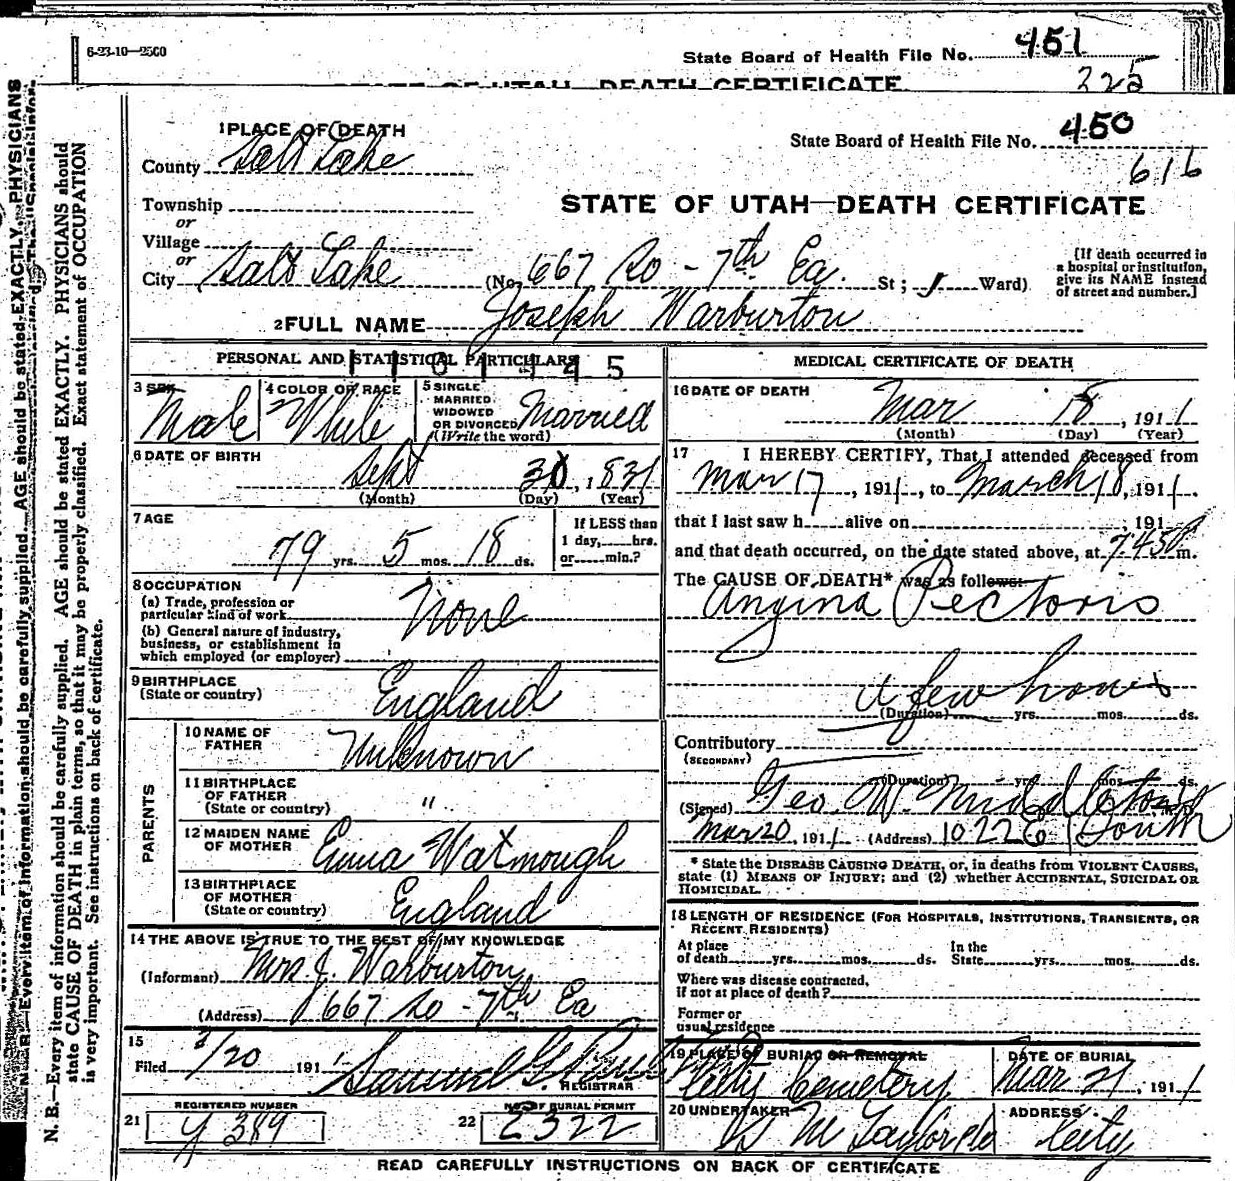 6-23-10—2500
State Board of Health File No. 451
225
STATE OF UTAH—DEATH CERTIFICATE
1 PLACE OF DEATH
State Board of Health File No. 450
616
County Salt Lake
STATE OF UTAH—DEATH CERTIFICATE
Township
or
Village
or
City Salt Lake (No. 667 So - 7th Ea. St; 5 Ward)
[If death occurred in
a hospital or institution,
give its NAME instead
of street and number.]
2 FULL NAME Joseph Warburton
PERSONAL AND STATISTICAL PARTICULARS
3 SEX Male
4 COLOR OR RACE White
5 SINGLE
MARRIED
WIDOWED
OR DIVORCED
(Write the word)
Married
6 DATE OF BIRTH
Sept 30, 1831
(Month) (Day) (Year)
7 AGE
79 yrs. 5 mos. 18 ds.
If LESS than
1 day, hrs.
or min.?
8 OCCUPATION
(a) Trade, profession or
particular kind of work None
(b) General nature of industry,
business, or establishment in
which employed (or employer)
9 BIRTHPLACE
(State or country) England
PARENTS
10 NAME OF
FATHER Unknown
11 BIRTHPLACE
OF FATHER
(State or country) "
12 MAIDEN NAME
OF MOTHER Emma Watmough
13 BIRTHPLACE
OF MOTHER
(State or country) England
14 THE ABOVE IS TRUE TO THE BEST OF MY KNOWLEDGE
(Informant) Mrs. J. Warburton
(Address) 667 So - 7th Ea
15
Filed 3/20 1911 Samuel G. Paul
REGISTRAR
REGISTERED NUMBER
21 Y 389
NO. OF BURIAL PERMIT
22 2322
MEDICAL CERTIFICATE OF DEATH
16 DATE OF DEATH
Mar 18, 1911
(Month) (Day) (Year)
17 I HEREBY CERTIFY, That I attended deceased from
Mar 17, 1911, to March 18, 1911.
that I last saw h alive on , 191
and that death occurred, on the date stated above, at 7.45 P m.
The CAUSE OF DEATH* was as follows:
Angina Pectoris
a few hours
(Duration) yrs. mos. ds.
Contributory
(SECONDARY)
(Duration) yrs. mos. ds.
(Signed) Geo. W. Middleton
Mar 20, 1911 (Address)
* State the DISEASE CAUSING DEATH, or, in deaths from VIOLENT CAUSES,
state (1) MEANS OF INJURY; and (2) whether ACCIDENTAL, SUICIDAL OR
HOMICIDAL.
18 LENGTH OF RESIDENCE (FOR HOSPITALS, INSTITUTIONS, TRANSIENTS, OR
RECENT RESIDENTS)
At place
of death yrs. mos. ds.
In the
State yrs. mos. ds.
Where was disease contracted,
if not at place of death?
Former or
usual residence
19 PLACE OF BURIAL OR REMOVAL
City Cemetery
DATE OF BURIAL
Mar 21, 1911
20 UNDERTAKER
S M Taylor Co
ADDRESS
City
READ CAREFULLY INSTRUCTIONS ON BACK OF CERTIFICATE
N. B.—Every item of information should be carefully supplied. AGE should be stated EXACTLY. PHYSICIANS should
state CAUSE OF DEATH in plain terms, so that it may be properly classified. Exact statement of OCCUPATION
is very important. See instructions on back of certificate.